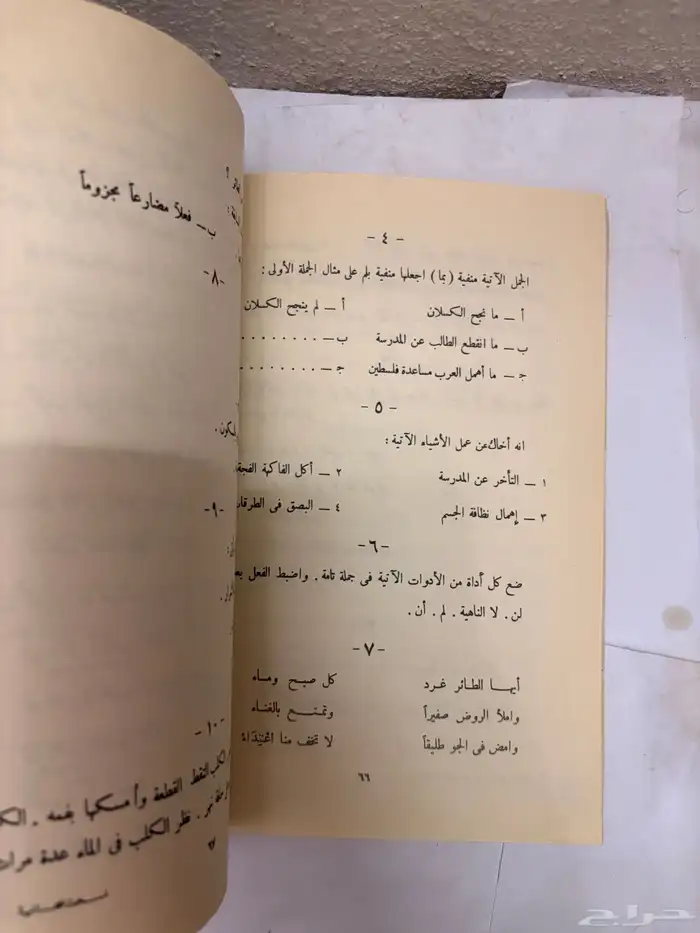 - ٤ -
الجمل الآتية منفية (بما) اجعلها منفية بلم على مثال الجملة الأولى :
أ — ما نجح الكسلان أ — لم ينجح الكسلان
ب — ما انقطع الطالب عن المدرسة ب — . . . . . . . .
ج — ما أهمل العرب مساعدة فلسطين ج — . . . . . . . .
- ٥ -
انه أخاك عن عمل الأشياء الآتية :
١ — التأخر عن المدرسة ٢ — أكل الفاكهة الفجة
٣ — إهمال نظافة الجسم ٤ — البصق فى الطرقات
- ٦ -
ضع كل أداة من الأدوات الآتية فى جملة تامة . واضبط الفعل
لن . لا الناهية . لم . أن .
- ٧ -
أيهـا الطـائر غـرد كل صبـح ومـاء
واملأ الروض صفيراً وتمتـع بالغناء
وامض فى الجو طليقاً لا تخف منا
٦٦
ب — فعلاً مضارعاً مجزوماً
- ٨ -
- ٩ -
- ١٠ -
الكلب التقط القطعة وأمسكها بفمه .
نظر الكلب فى الماء عدة مرات
٦٧
حراج